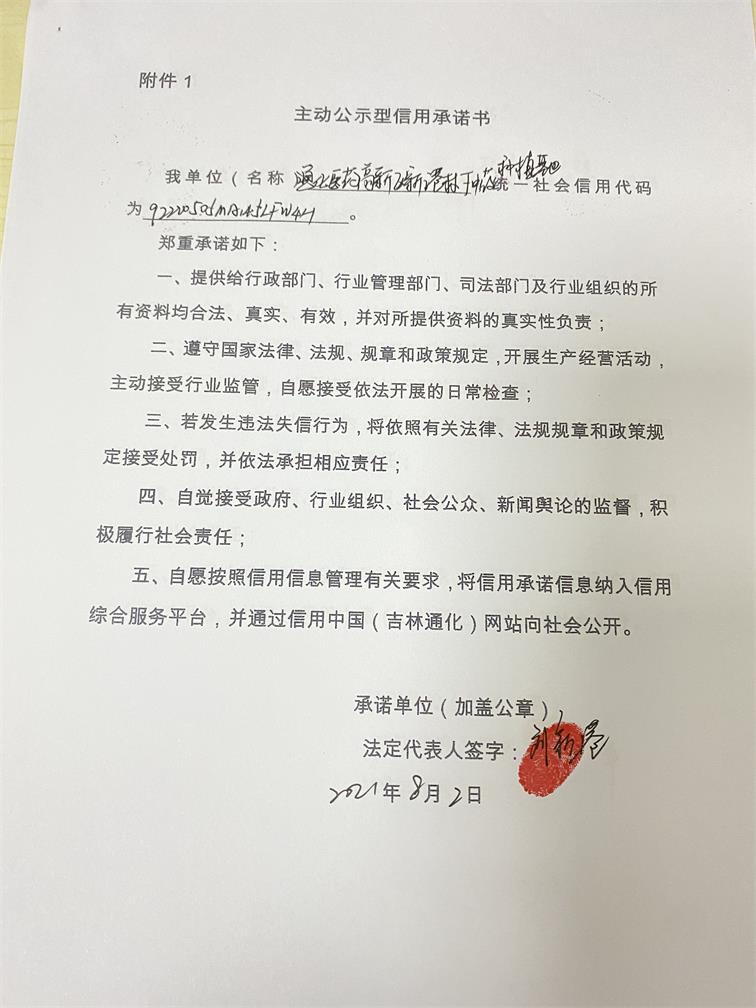 附件 1
主动公示型信用承诺书
我单位（名称 医药高新区新 种植基地 统一社会信用代码
为 。
郑重承诺如下：
一、提供给行政部门、行业管理部门、司法部门及行业组织的所
有资料均合法、真实、有效，并对所提供资料的真实性负责；
二、遵守国家法律、法规、规章和政策规定，开展生产经营活动，
主动接受行业监管，自愿接受依法开展的日常检查；
三、若发生违法失信行为，将依照有关法律、法规规章和政策规
定接受处罚，并依法承担相应责任；
四、自觉接受政府、行业组织、社会公众、新闻舆论的监督，积
极履行社会责任；
五、自愿按照信用信息管理有关要求，将信用承诺信息纳入信用
综合服务平台，并通过信用中国（吉林通化）网站向社会公开。
承诺单位（加盖公章）
法定代表人签字：刘新
2021年8月2日